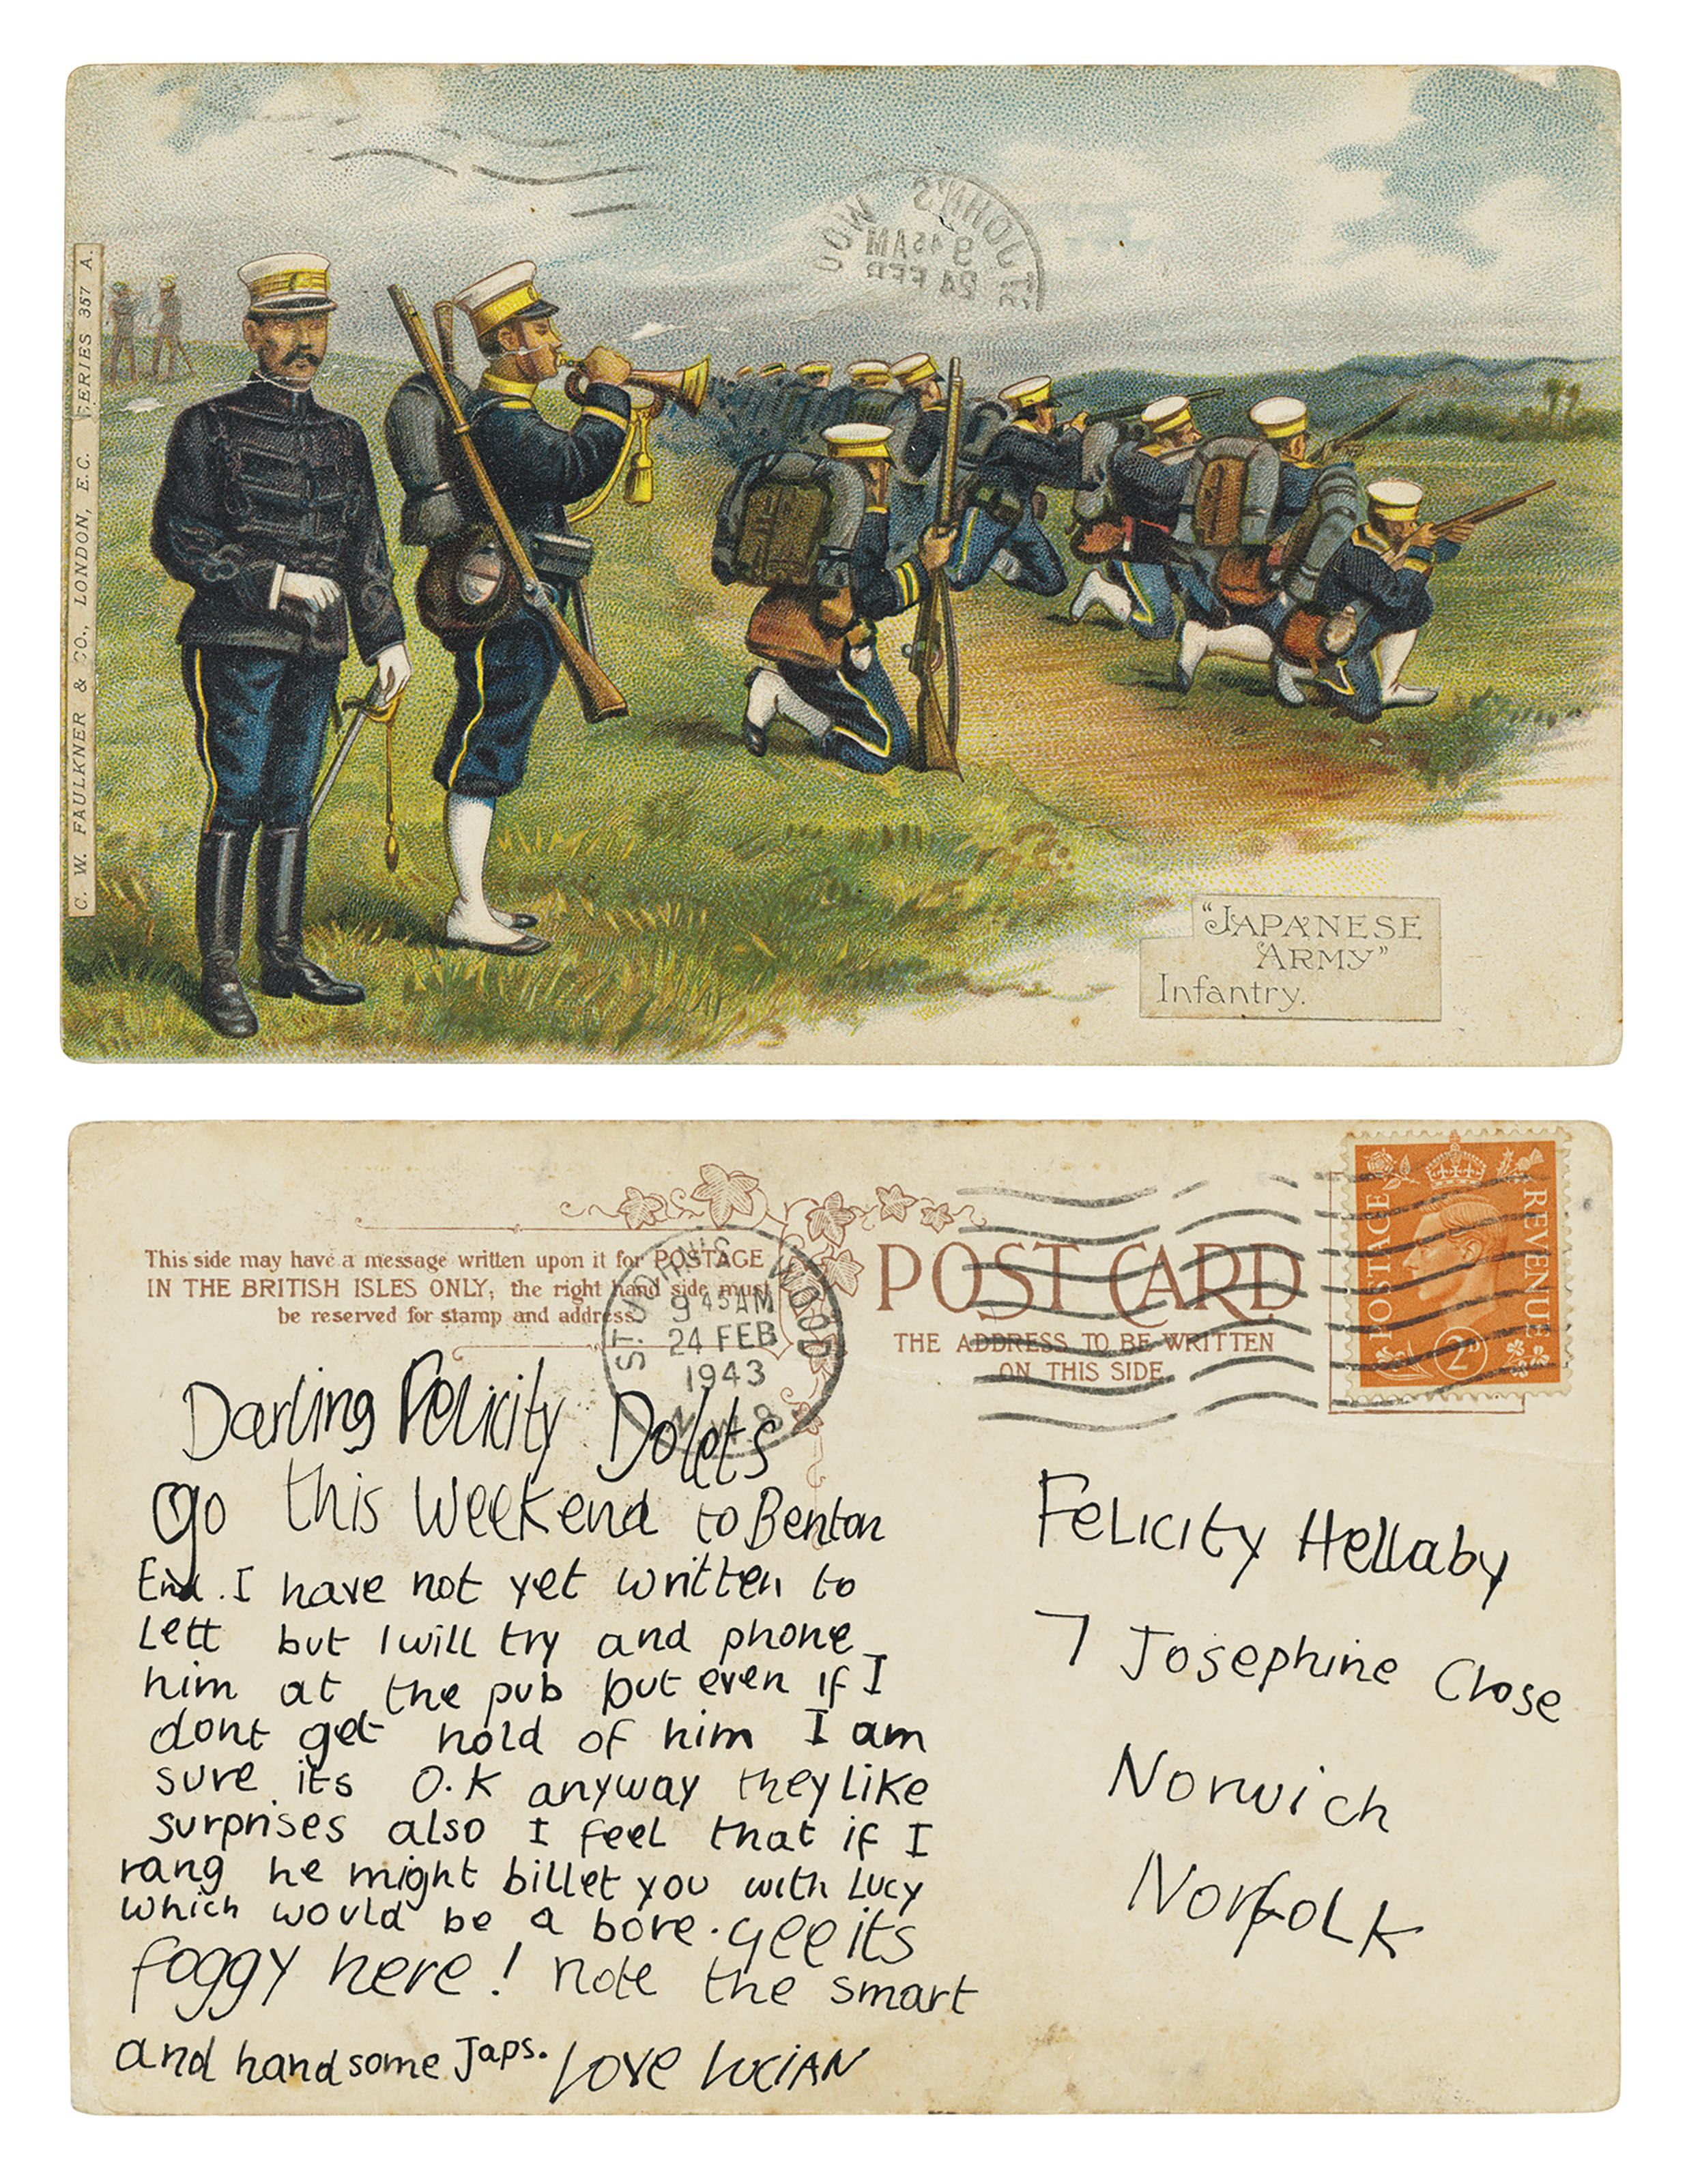 C. W. FAULKNER & CO., LONDON, E.C. SERIES 357 A.
ST. JOHN'S WOOD
9 45 AM
24 FEB
"JAPANESE
ARMY"
Infantry.
This side may have a message written upon it for POSTAGE
IN THE BRITISH ISLES ONLY; the right hand side must
be reserved for stamp and address.
POST CARD
THE ADDRESS TO BE WRITTEN
ON THIS SIDE
POSTAGE
REVENUE
2D
ST. JOHN'S WOOD
9 45 AM
24 FEB
1943
N.W.8
Darling Felicity Do lets
go this Weekend to Benton
End. I have not yet written to
Lett but I will try and phone
him at the pub but even if I
dont get hold of him I am
sure its O.K anyway they like
surprises also I feel that if I
rang he might billet you with Lucy
which would be a bore. gee its
foggy here! note the smart
and handsome Japs. Love Lucian
Felicity Hellaby
7 Josephine Close
Norwich
Norfolk